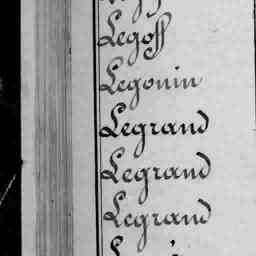 Legoff
Legonin
Legrand
Legrand
Legrand